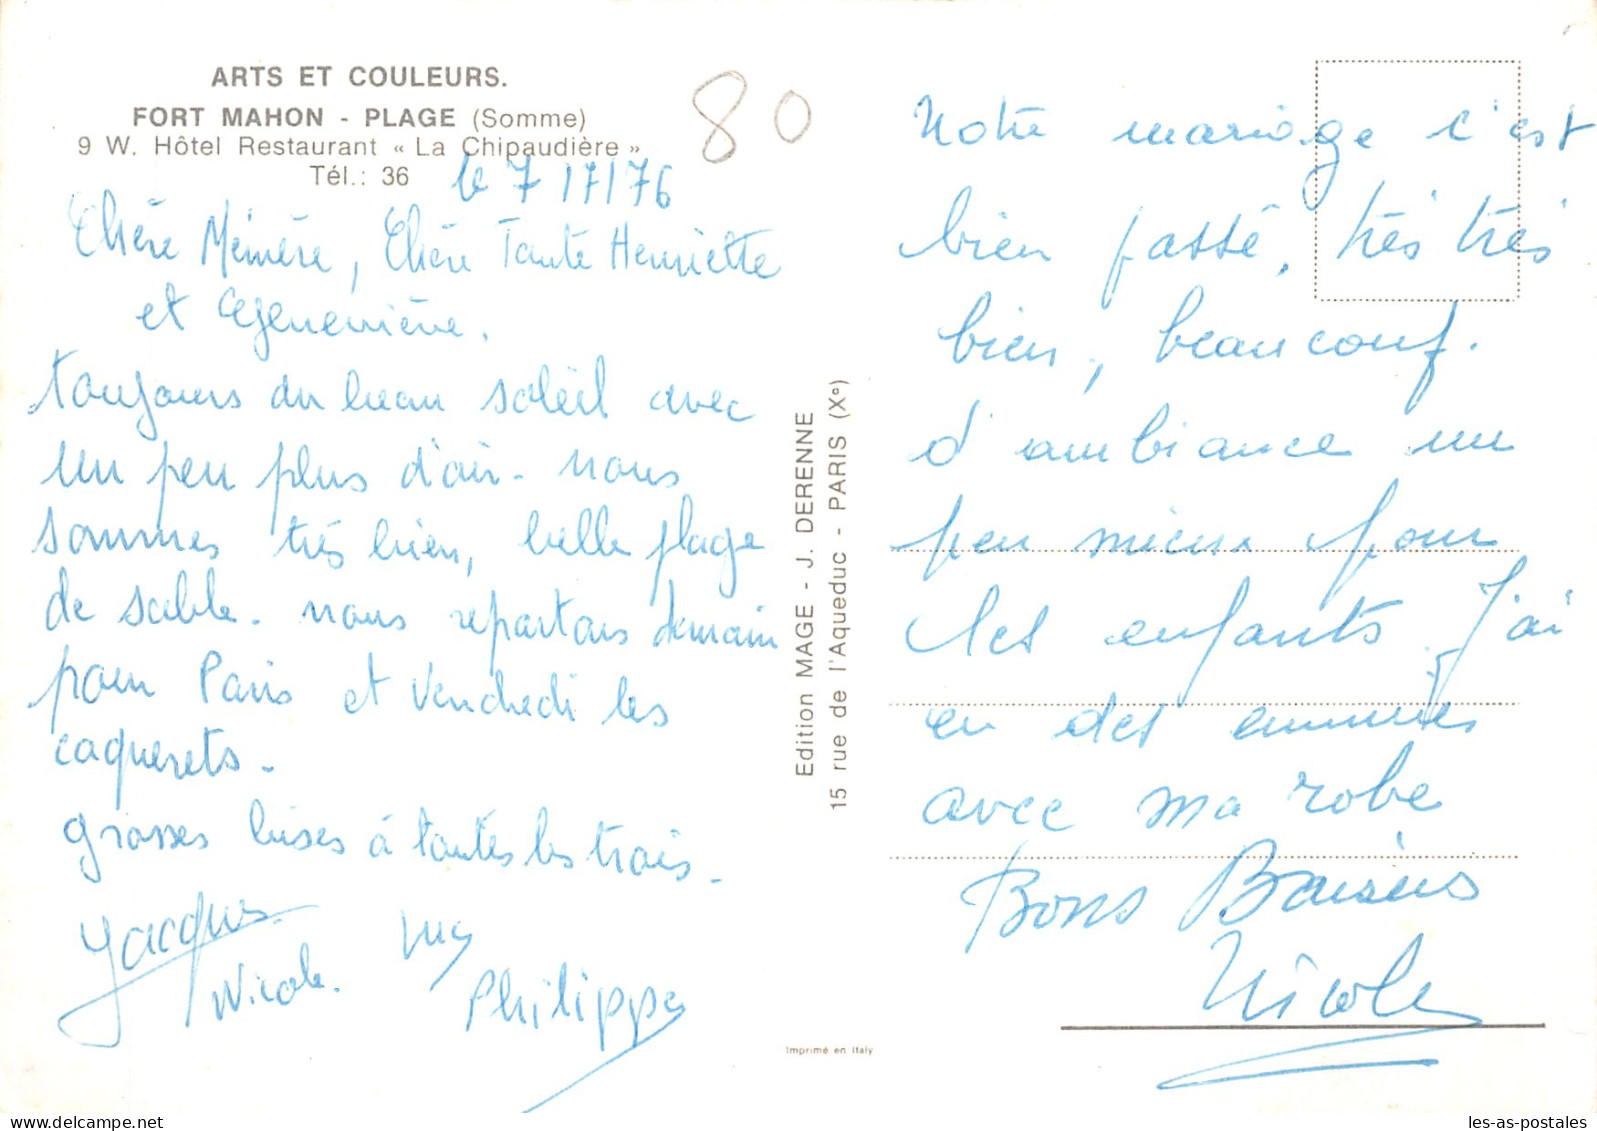 ARTS ET COULEURS.
FORT MAHON - PLAGE (Somme)
9 W. Hôtel Restaurant « La Chipaudière »
Tél.: 36
80
le 7/7/76
Chère Mémère, Chère Tante Henriette
et Geneviève.
toujours du beau soleil avec
un peu plus d'air. nous
sommes très bien, belle plage
de sable. nous repartons demain
pour Paris et Vendredi les
caquerets.
grosses bises à toutes les trois.
Jacques
Nicole.
Philippe
Edition MAGE - J. DERENNE
15 rue de l'Aqueduc - PARIS (Xe)
Imprimé en Italy
Notre mariage c'est
bien passé, très très
bien, beaucoup.
d'ambiance un
peu mieux pour
les enfants. J'ai
eu des ennuies
avec ma robe
Bons Baisers
Nicole
les-as-postales